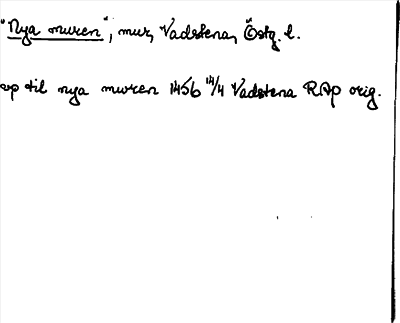 "Nya muren", mur, Vadstena, Östg. l.
up til nya muren 1456 14/4 Vadstena RAp orig.